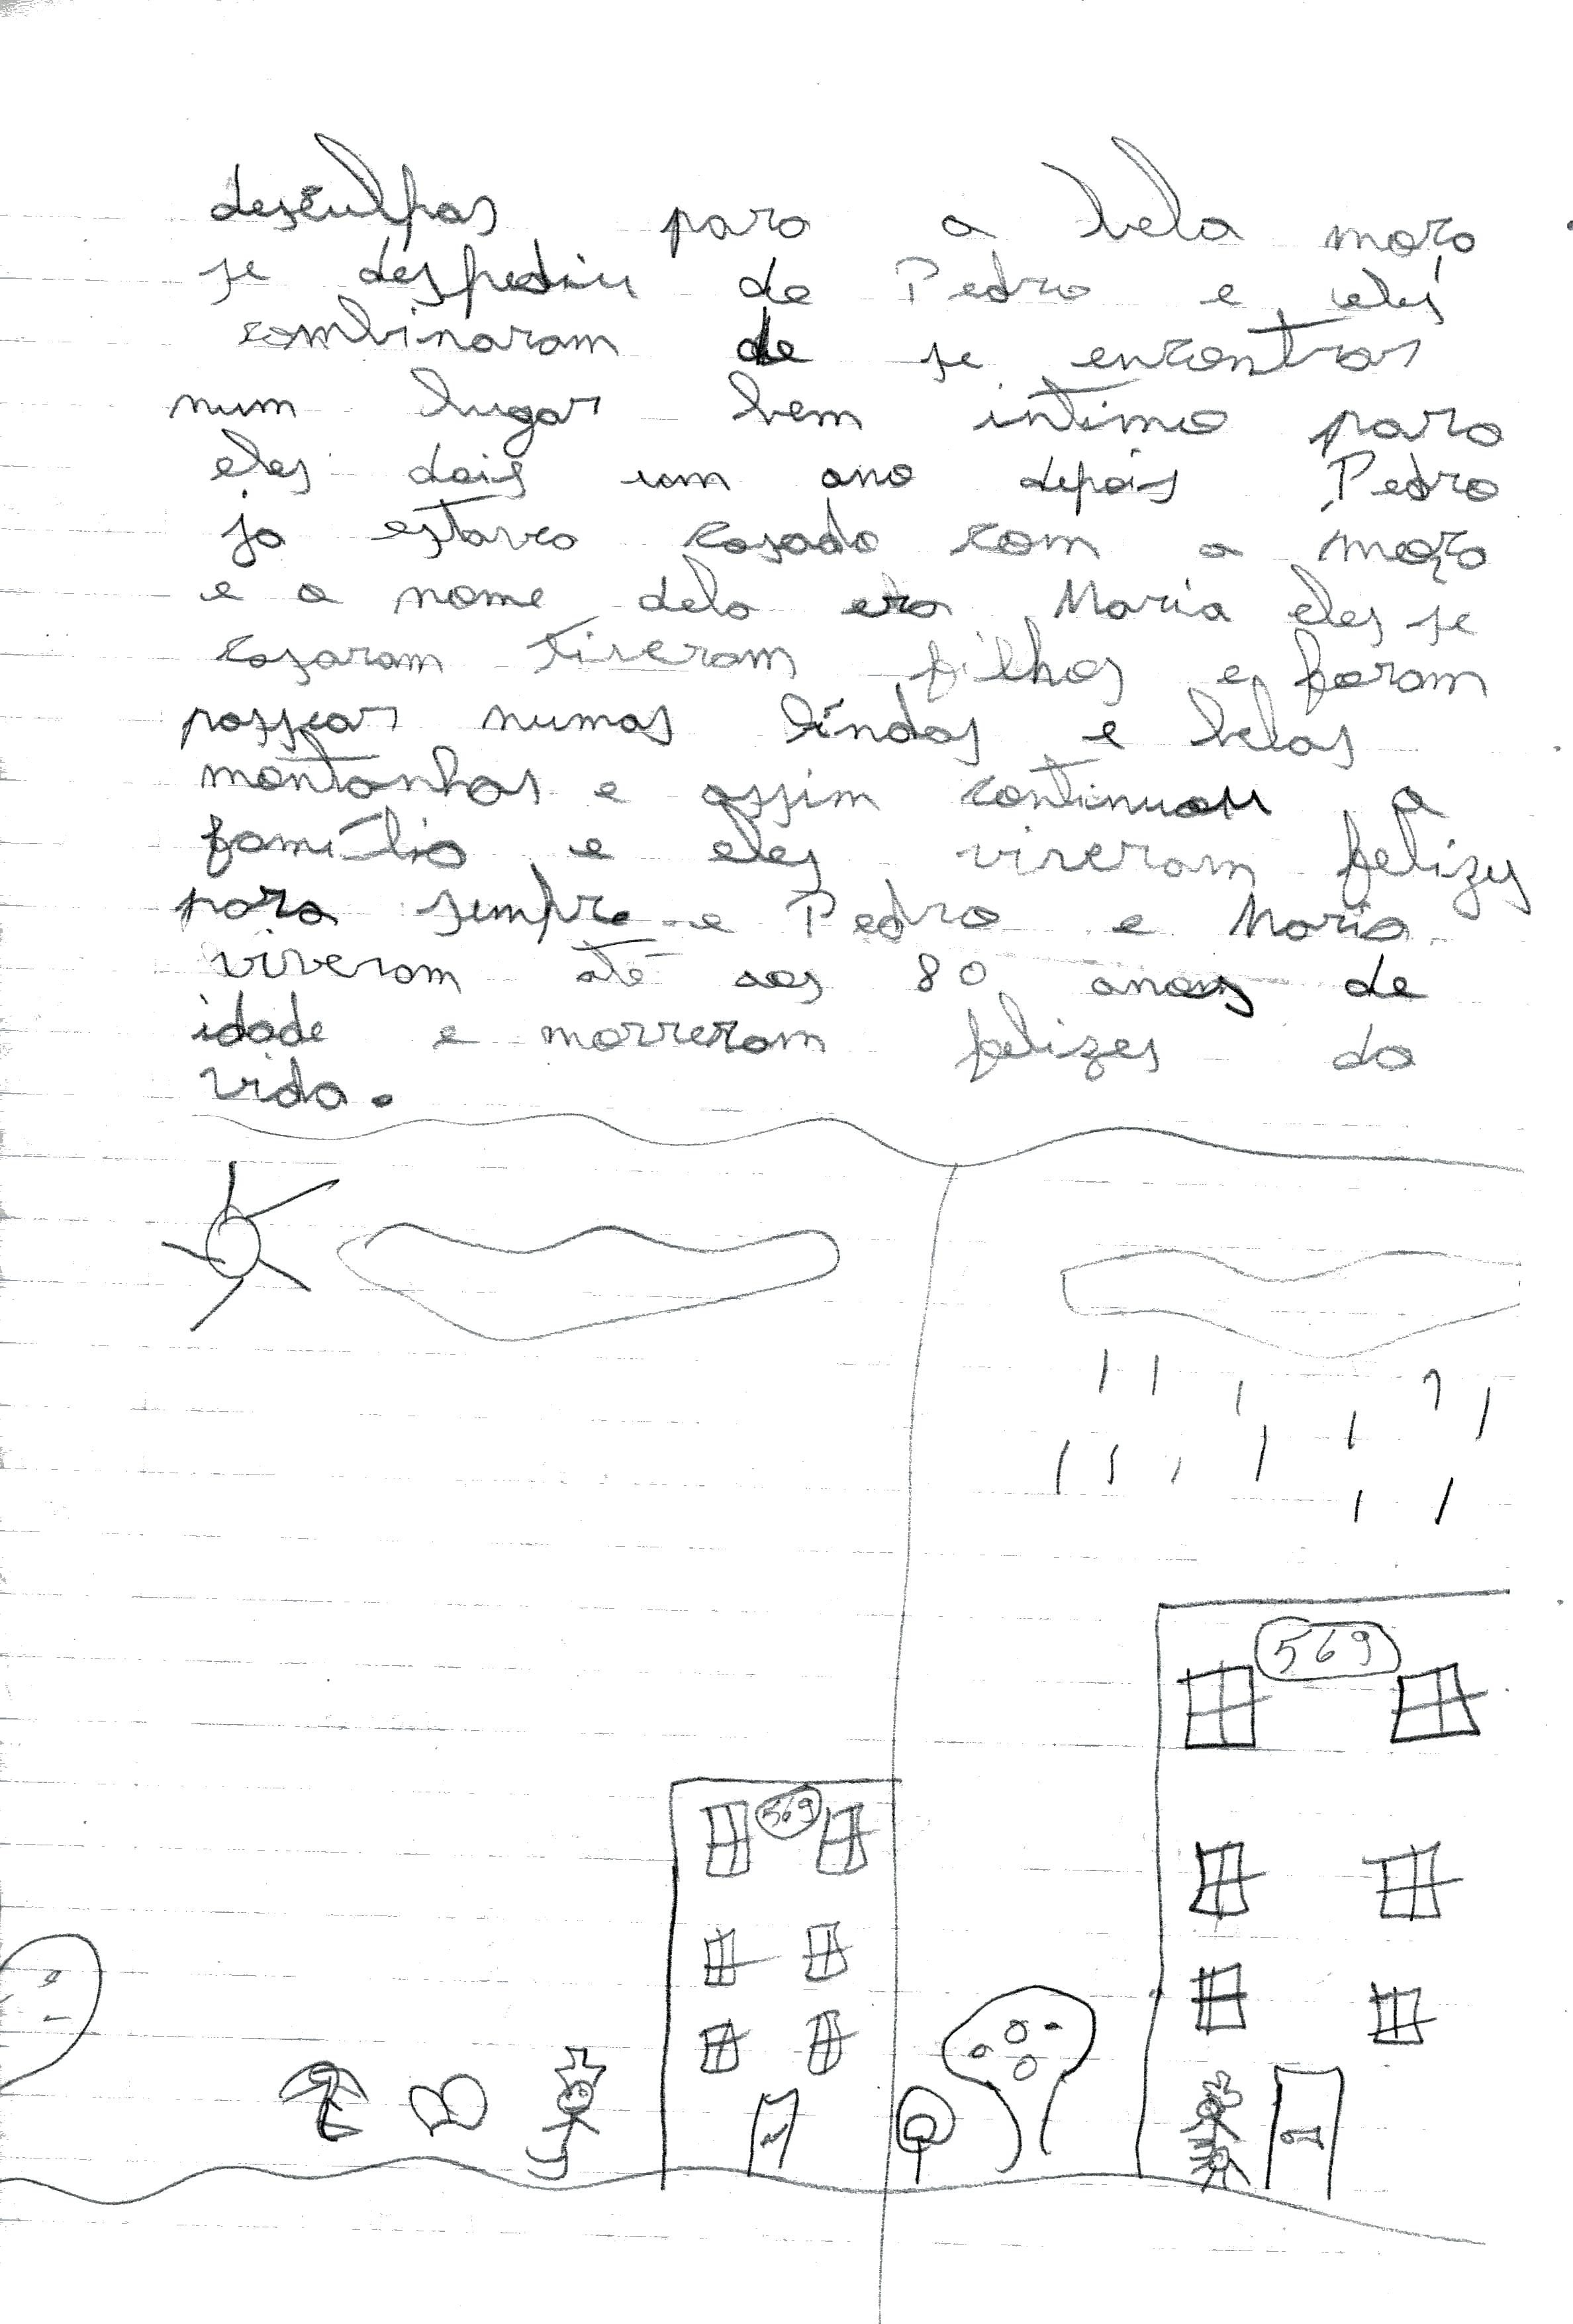 desculpas para a bela moça
se despediu de Pedro e eles
combinaram de se encontrar
num lugar bem intimo para
eles dois um ano depois Pedro
ja estava casado com a moça
e o nome dela era Maria eles se
casaram tiveram filhos e foram
passear numas lindas e belas
montanhas e assim continuou a
família e eles viveram felizes
para sempre e Pedro e Maria
viveram até aos 80 anos de
idade e morreram felizes da
vida.
569
569